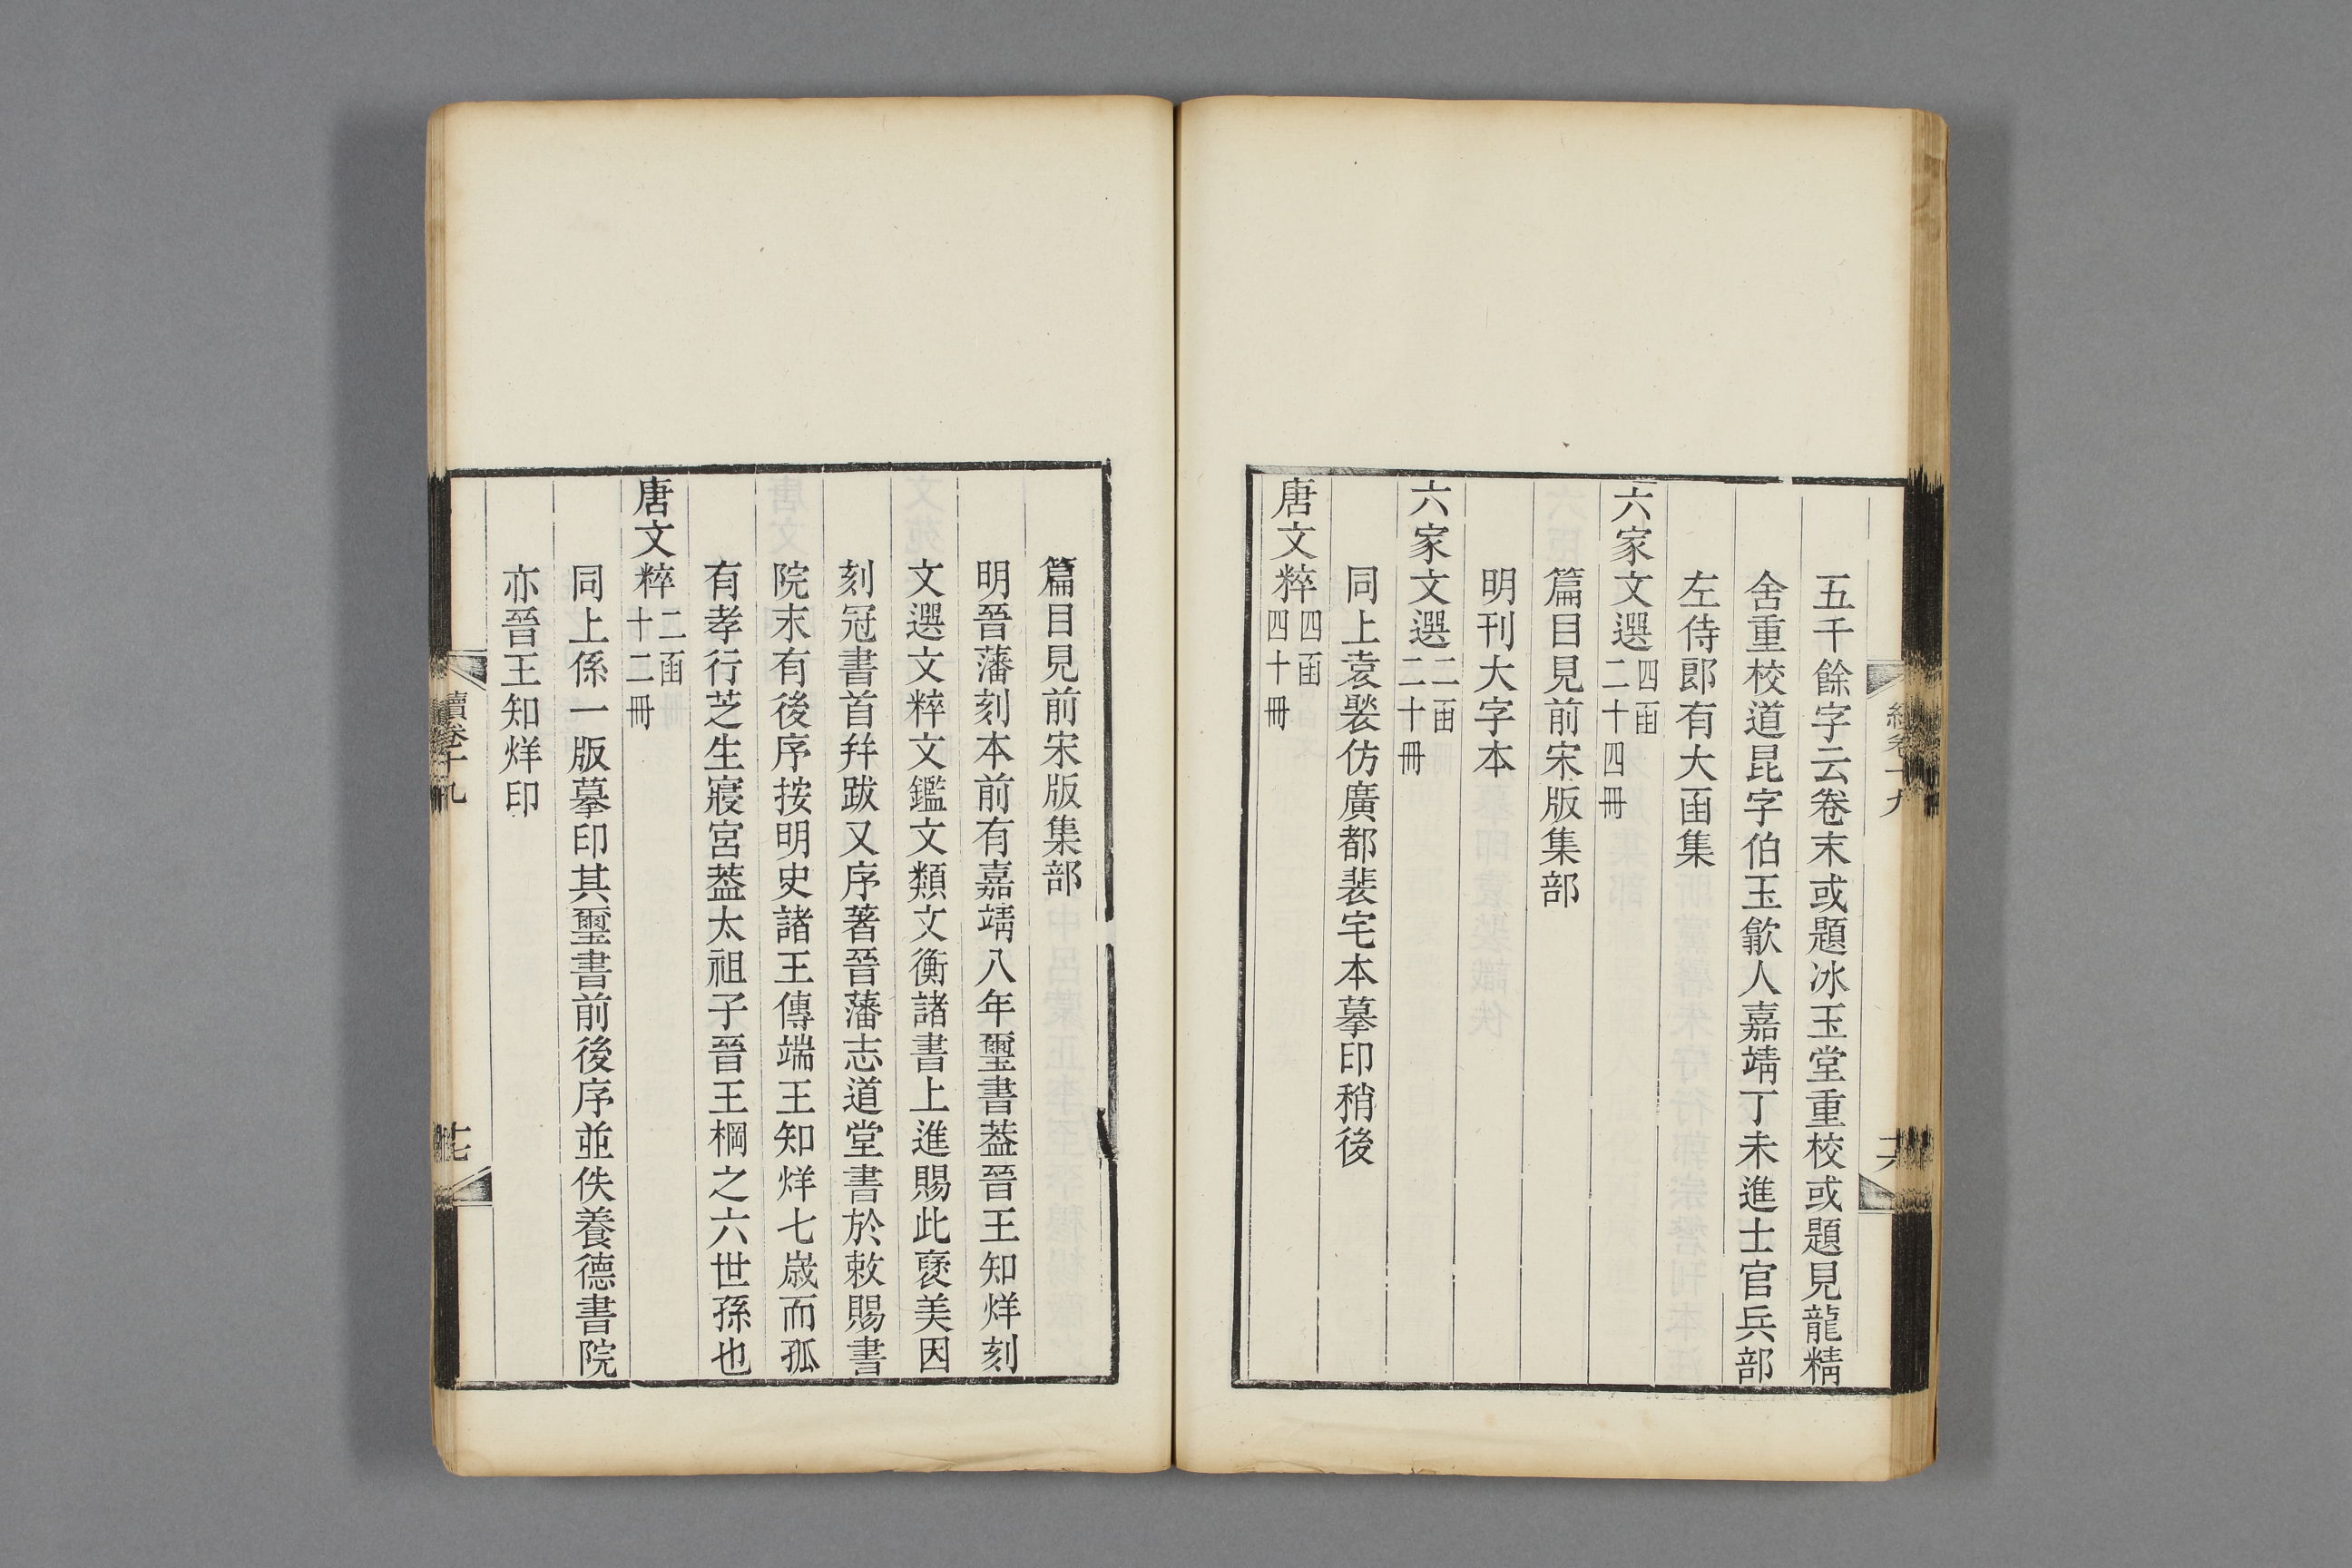 五千餘字云卷末或題冰玉堂重校或題見龍精
舍重校道昆字伯玉歙人嘉靖丁未進士官兵部
左侍郎有大函集
六家文選四函二十四冊
篇目見前宋版集部
明刊大字本
六家文選二函二十冊
同上袁褧仿廣都裴宅本摹印稍後
唐文粹四函四十冊
篇目見前宋版集部
明晉藩刻本前有嘉靖八年璽書葢晉王知烊刻
文選文粹文鑑文類文衡諸書上進賜此襃美因
刻冠書首并跋又序著晉藩志道堂書於敕賜書
院末有後序按明史諸王傳端王知烊七歲而孤
有孝行芝生寢宮葢太祖子晉王棡之六世孫也
唐文粹二函十二冊
同上係一版摹印其璽書前後序並佚養德書院
亦晉王知烊印
續卷十九